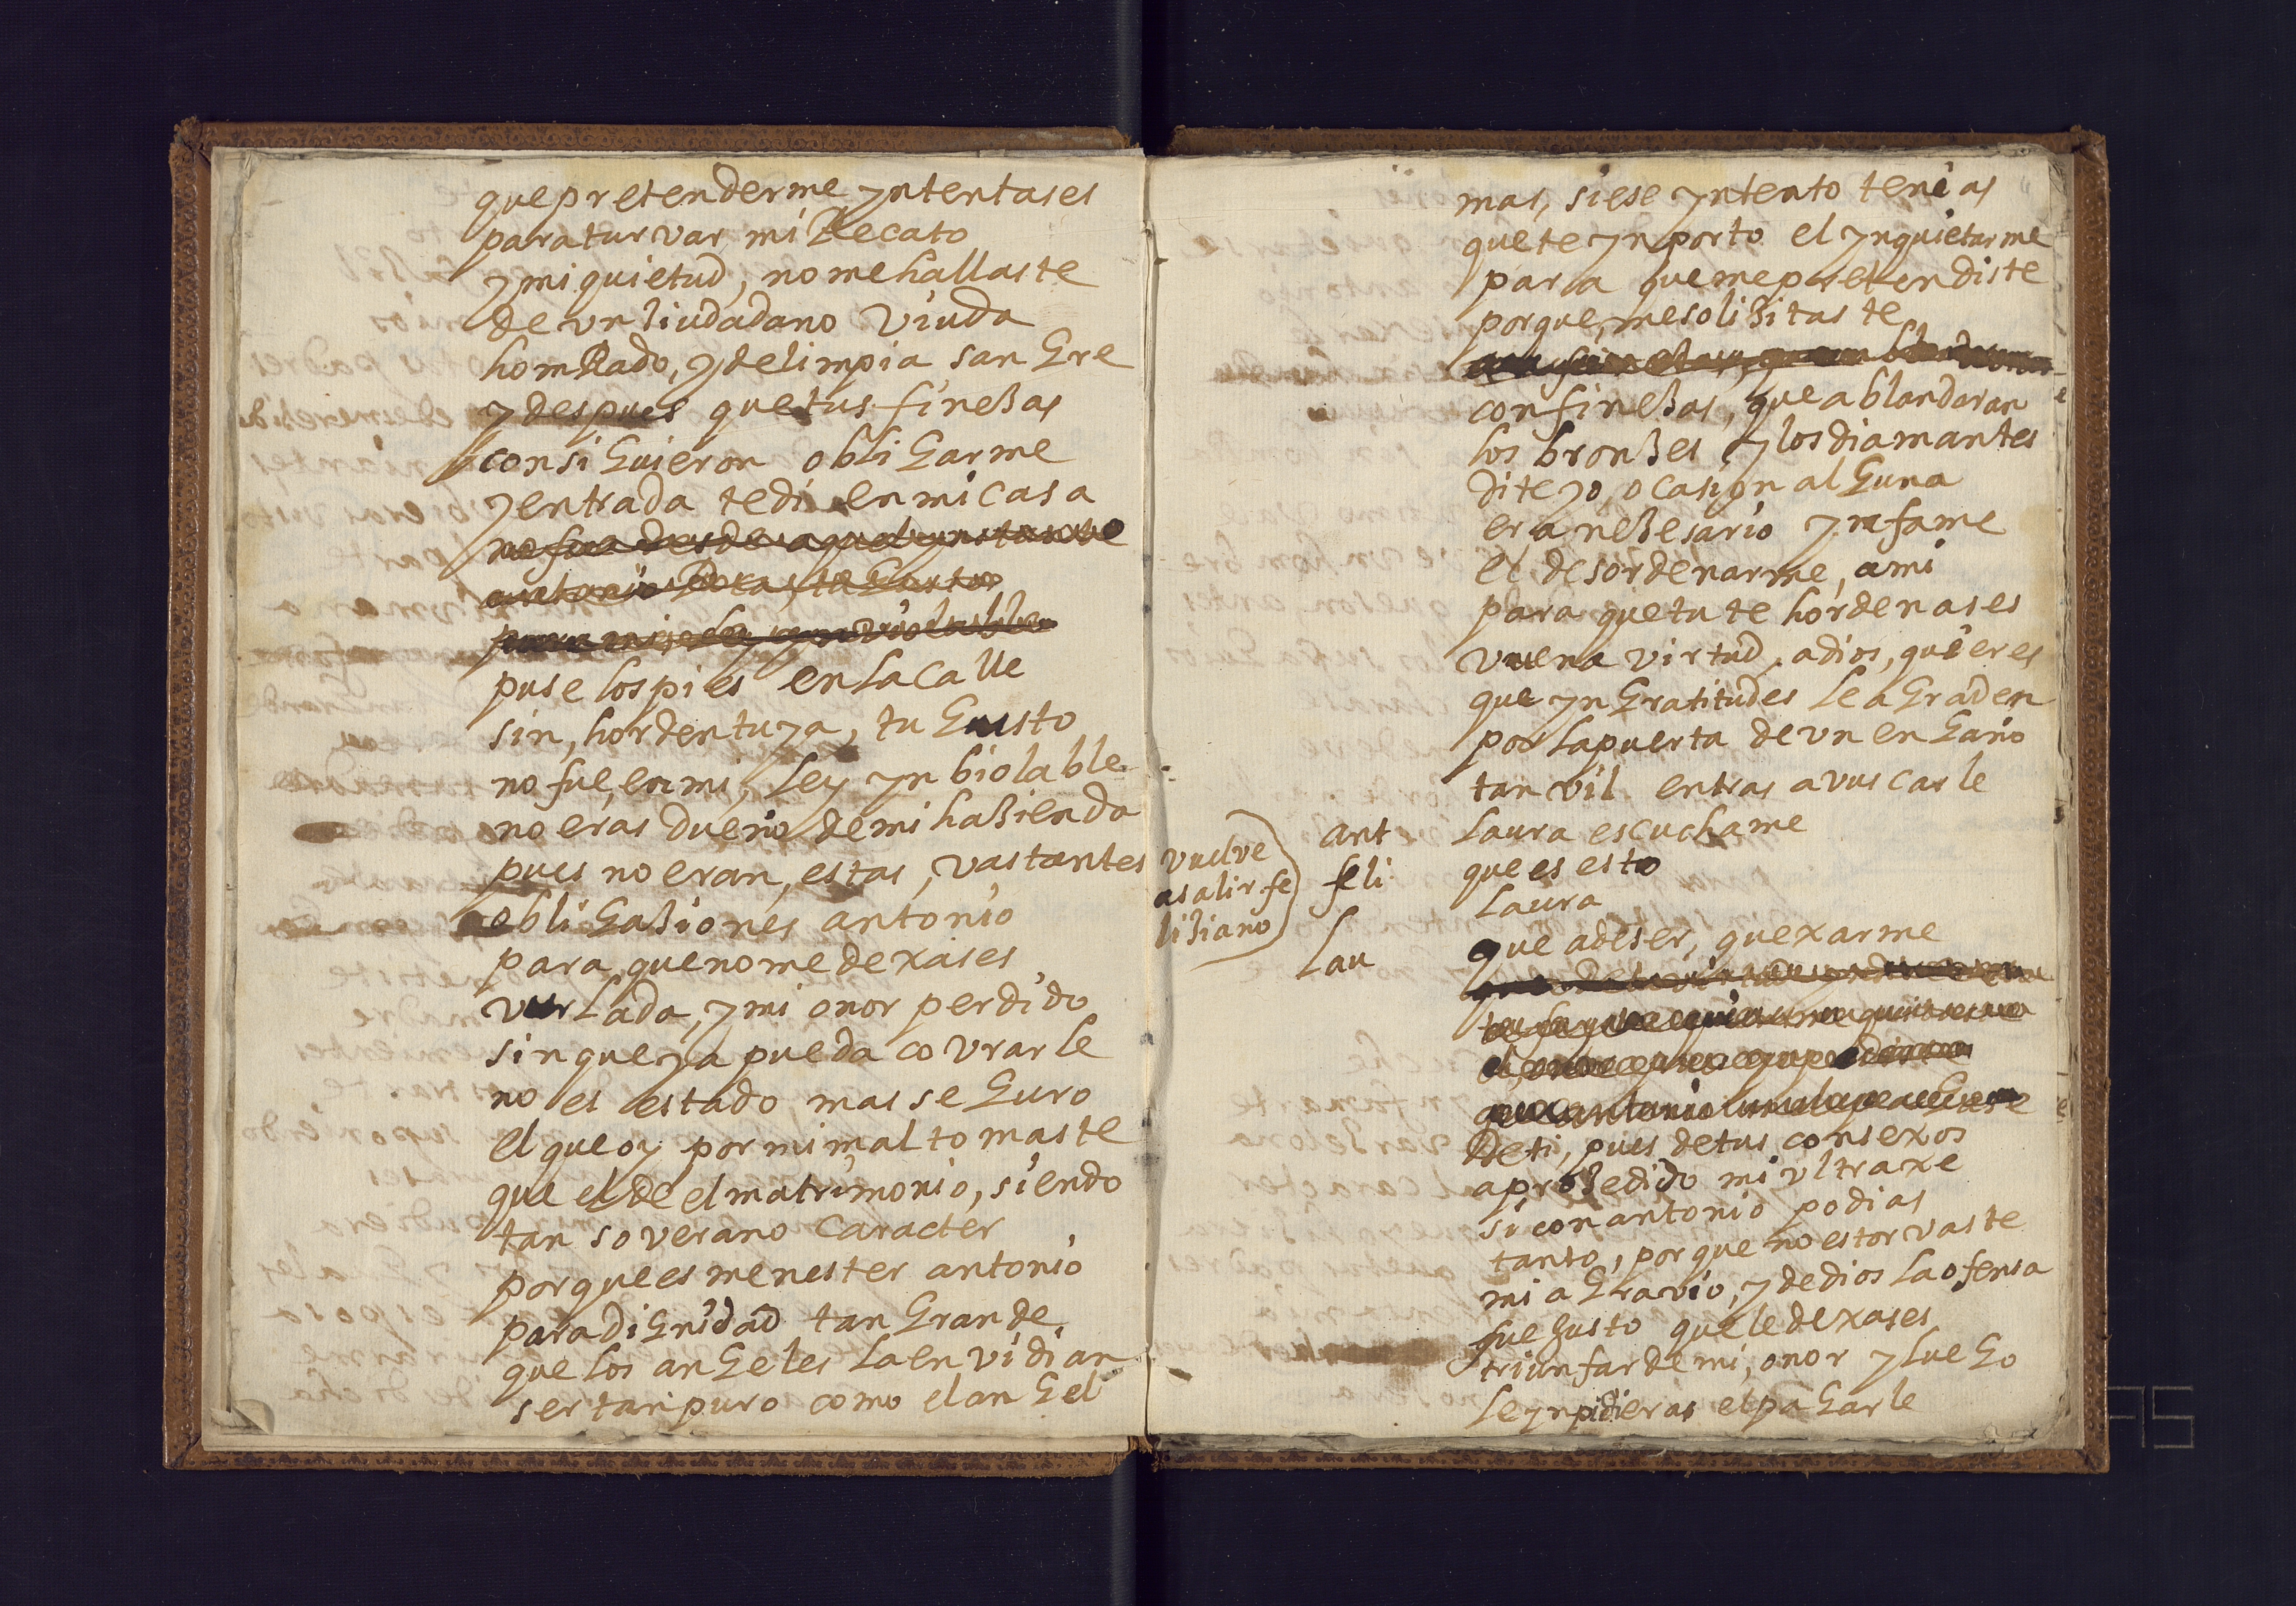 que pretenderme yntentases
para turvar mi Recato
y mi quietud, no me hallaste
de vn ziudadano viuda
homRado, y de limpia sangre
y despues que tus finezas
consiguieron obligarme
y entrada te di en mi casa
no fue desde aquel ynstante
puse los pies en la calle
sin, horden tuya, tu gusto
no fue, en mi, ley ynbiolable
no eras dueño de mi hazienda
pues no eran, estas, vastantes
obligaziones antonio
para que no me dexases
vurlada, y mi onor perdido
sin que ya pueda covrarle
no es estado, mas seguro
el que oy por mi mal tomaste
que el de el matrimonio, siendo
tan soverano caracter
porque es menester antonio
para dignidad tan grande
que los angeles la envidian
ser tan puro como el angel
mas, si ese yntento tenias
que te ynporto el ynquietarme
para que me pretendiste
porque, me solizitaste
con finezas, que ablandaran
los bronzes y los diamantes
dite yo, ocasion alguna
era nezesario ynfame
el desordenarme, a mi
para que tu te hordenases
vuena virtud, a dios, quieres
que yngratitudes le agraden
por la puerta de vn engaño
tan vil entras a vuscarle
ant Laura escuchame
vuelve
a salir fe
liziano
feli que es esto
Laura
Lau que a de ser, quexarme
De ti, pues de tus consexos
a prozedido mi vltraxe
si con antonio podias
tanto, porque no estorvaste
mi agravio, y de dios la ofensa
fue gusto que le dexases
triunfar de mi, onor y luego
le ynpidieras el pagarle